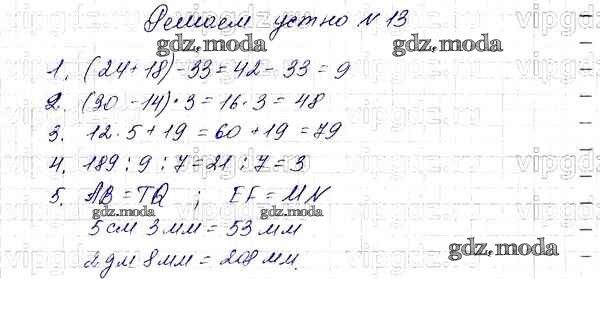 Решаем устно №13
gdz.moda gdz.moda
1. (24+18)-33=42-33=9
2. (30-14)·3=16·3=48
3. 12·5+19=60+19=79
4. 189:9:7=21:7=3
5. AB=TQ ; EF=MN
gdz.moda gdz.moda
5 см 3 мм = 53 мм
gdz.moda
2 дм 8 мм = 208 мм.